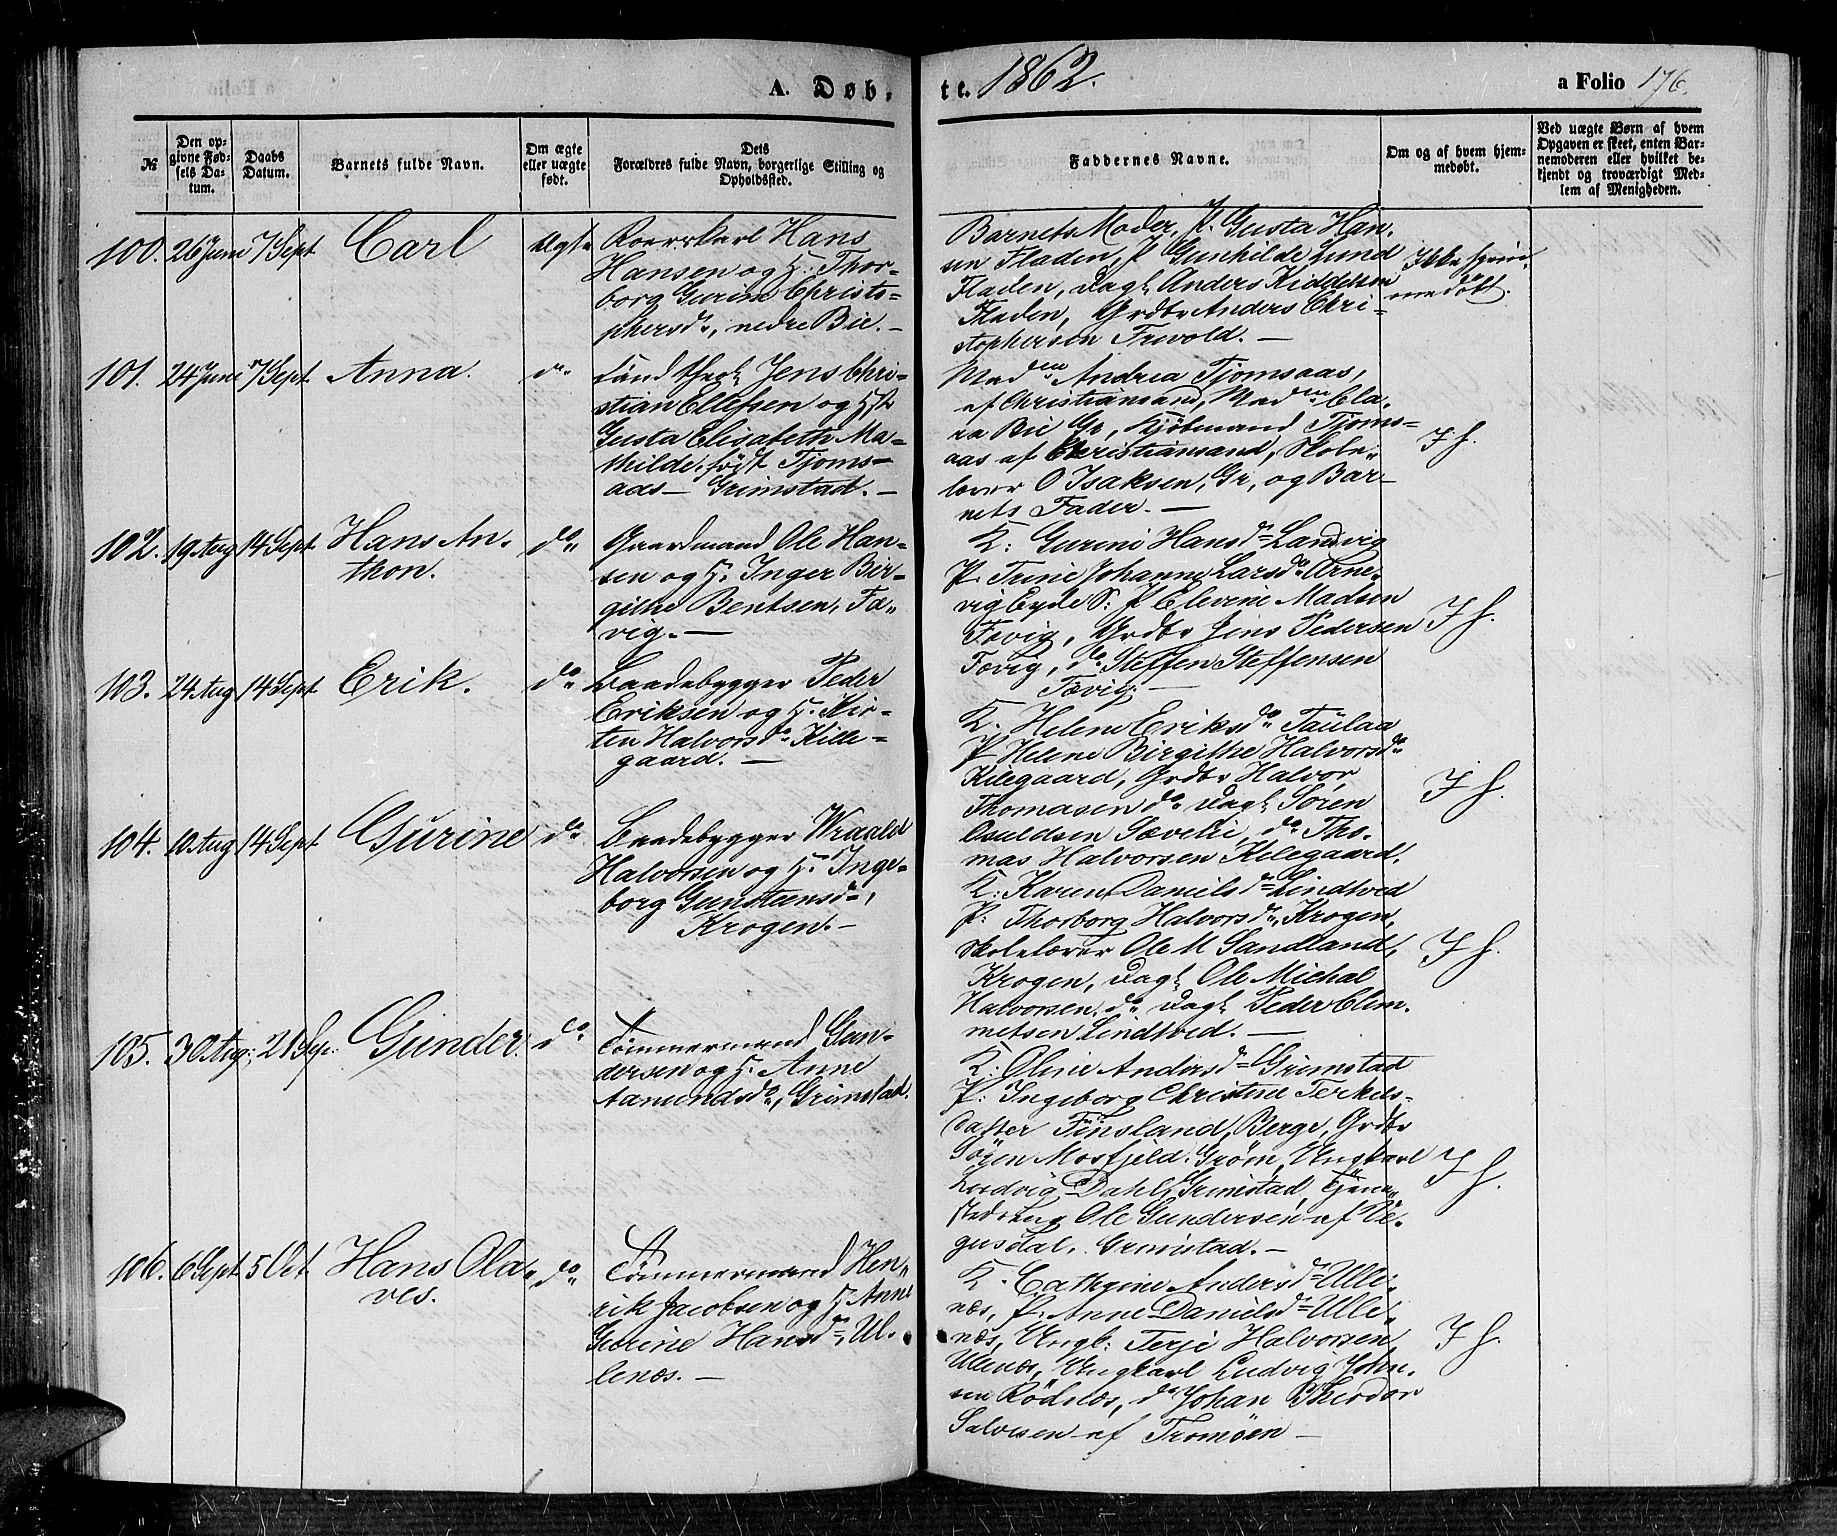 A. Døb-
te. 1862.
a Folio 176.
№
Den op-
givne Fød-
sels Da-
tum.
Daabs
Datum.
Barnets fulde Navn.
Om ægte
eller uægte
født.
Dets
Forældres fulde Navn, borgerlige Stilling og
Opholdssted.
Faddernes Navne.
Om og af hvem hjem-
medøbt.
Ved uægte Børn af hvem
Opgaven er skeet, enten Bar-
nemoderen eller hvilket be-
kjendt og troværdigt Med-
lem af Menigheden.
100. 26 Juni 7 Sept Carl ægte
Hans
Hansen og H. Thor-
borg Gurine Christo-
phersdr, nedre Bie. —
Barnets Moder, P. Gusta Han-
sen Fladen, P Gunhilde Lund
Fladen, Dagl Anders Kiddelsen
Fladen, Grdbr Anders Chri-
stophersen Frevold. —
Ikke hjem-
medøbt.
101. 24 Juni 7 Sept Anna. do
Jens Chri-
stian Ellefsen og Hst
Gusta Elisabeth Ma-
thilde, født Tjoms-
aas — Grimstad. —
Madm Andrea Tjomsaas,
af Christiansand, Madm Cla-
ra Bie Gr, Kjøbmand Tjoms-
aas af Christiansand, Skole-
lærer O Isaksen, Gr, og Bar-
nets Fader. —
I H.
102. 19 Aug 14 Sept Hans An-
thon. do
Gaardmand Ole Han-
sen og H. Inger Bir-
githe Bentsen, Fæ-
vig. —
K: Gurine Hansdr Landvig
P. Trine Johanne Larsdr Arne-
vig Eyde S: P Elevine Madsen
Fævig, Grdbr Jens Pedersen
Fævig, do Steffen Steffensen
Fævig. —
I H.
103. 24 Aug 14 Sept Erik. do
Baadebygger Peder
Eriksen og H. Kir-
ten Halvorsdr Kille-
gaard. —
K. Helene Eriksdr Taulaa
P Helene Birgithe Halvorsdr
Kilegaard, Grdbr Halvor
Thomasen do Dagl Søren
Osuldsen Sævelie, do Tho-
mas Halvorsen Kilegaard.
I H.
104. 10 Aug 14 Sept Gurine do
Baadebygger Wraald
Halvorsen og H. Inge-
borg Gunsteensdr,
Krogen. —
K: Karen Danielsdr Lindtved
P: Thorborg Halvorsdr, Krogen,
Skolelærer Ole M Sandland,
Krogen, Dagl Ole Michal
Halvorsen, do Dagl Peder Clem-
metsen Lindtved. —
I H.
105. 30 Aug: 21 Sep: Gunder. do
Tømmermand Gun-
dersen og H. Anne
Aamundsdr, Grimstad.
K: Oline Andersdr Grimstad
P: Ingeborg Christine Terkels-
datter Finsland, Berge, Grdbr
Søren Mosfjeld. Grøm, Ungkarl
Ludvig Dahl Grimstad, Tjene-
Ole Gundersen af Ve-
gusdal, Grimstad. —
I H.
106. 6 Sept 5 Oct. Hans Ola-
ves. do
Tømmermand Hen-
rik Jacobsen og H Anne
Gurine Hansdr, Ul-
lenæs. —
K. Cathrine Andersdr Ulle-
næs, P: Anne Danielsdr Ulle-
næs, Ungk: Terje Halvorsen
Ullenæs, Ungkarl Ludvig John-
sen Rødnæs, do Johan Theodor
Salvesen af Tromøen —
I H.